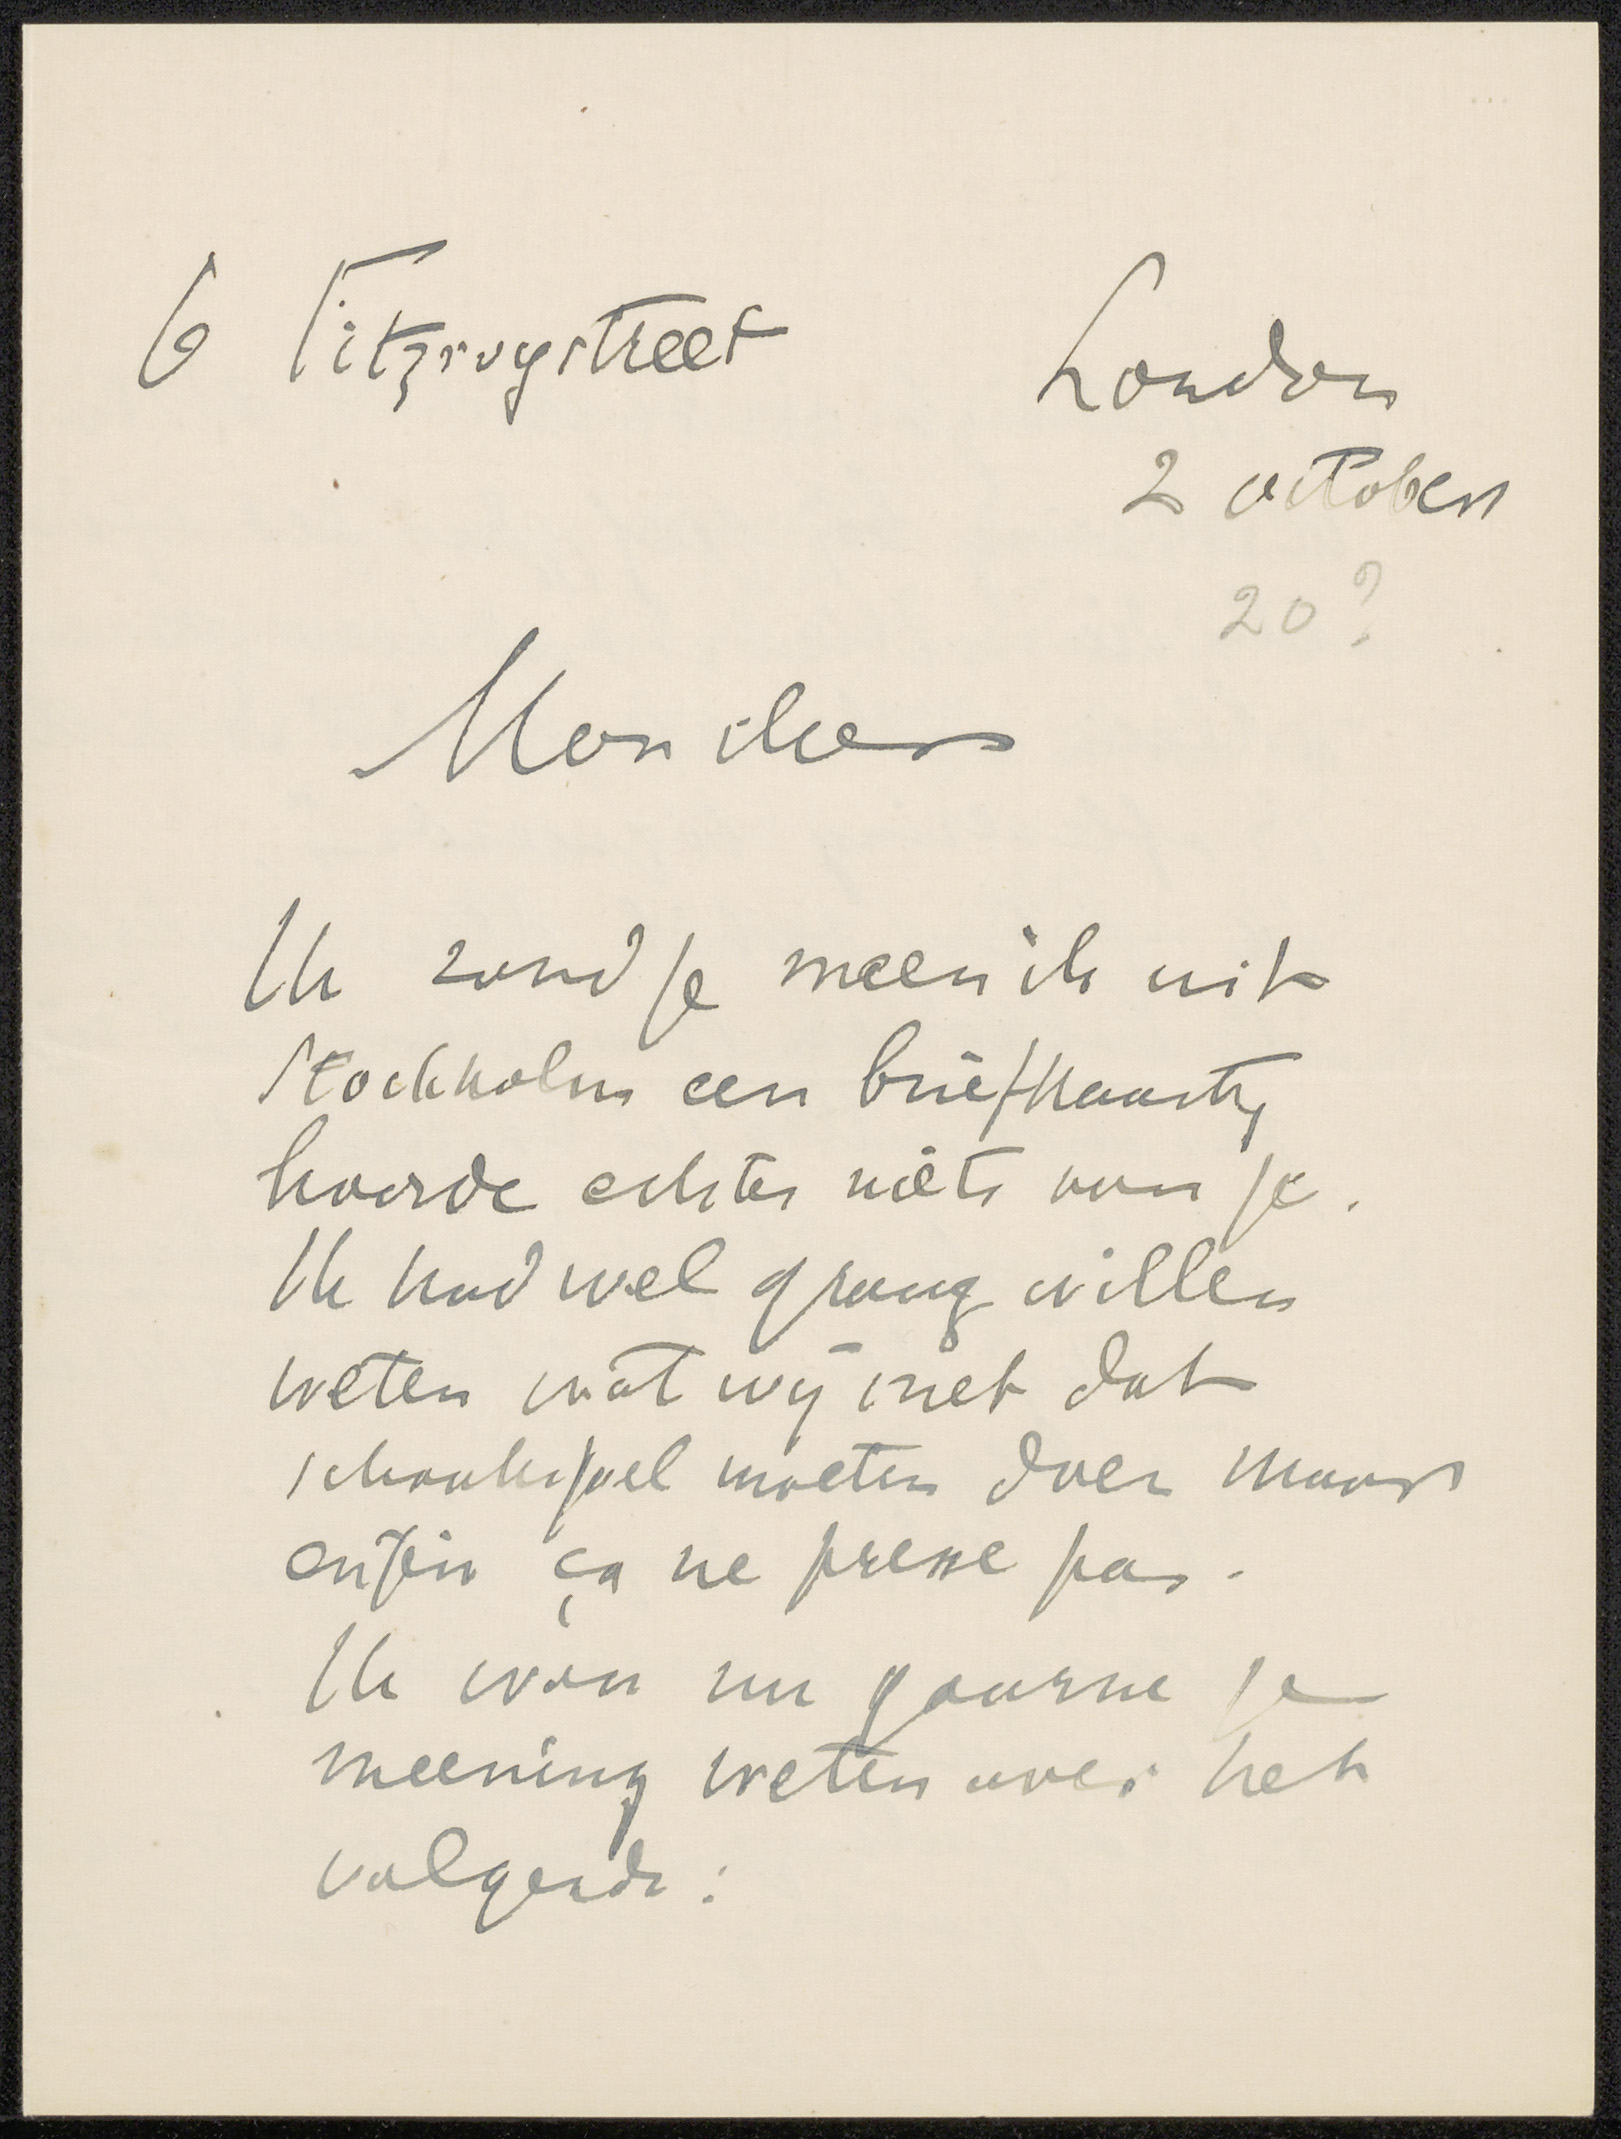 6 Fitzroystreet
London
2 october
20?
Mon cher
Ik zond je meen ik uit
Stockholm een briefkaartj
hoorde echter niets van je.
Ik had wel graag willen
weten wat wij met dat
schaakspel moeten doen maar
enfin ça ne presse pas.
Ik wou nu gaarne je
meening weten over het
volgende: